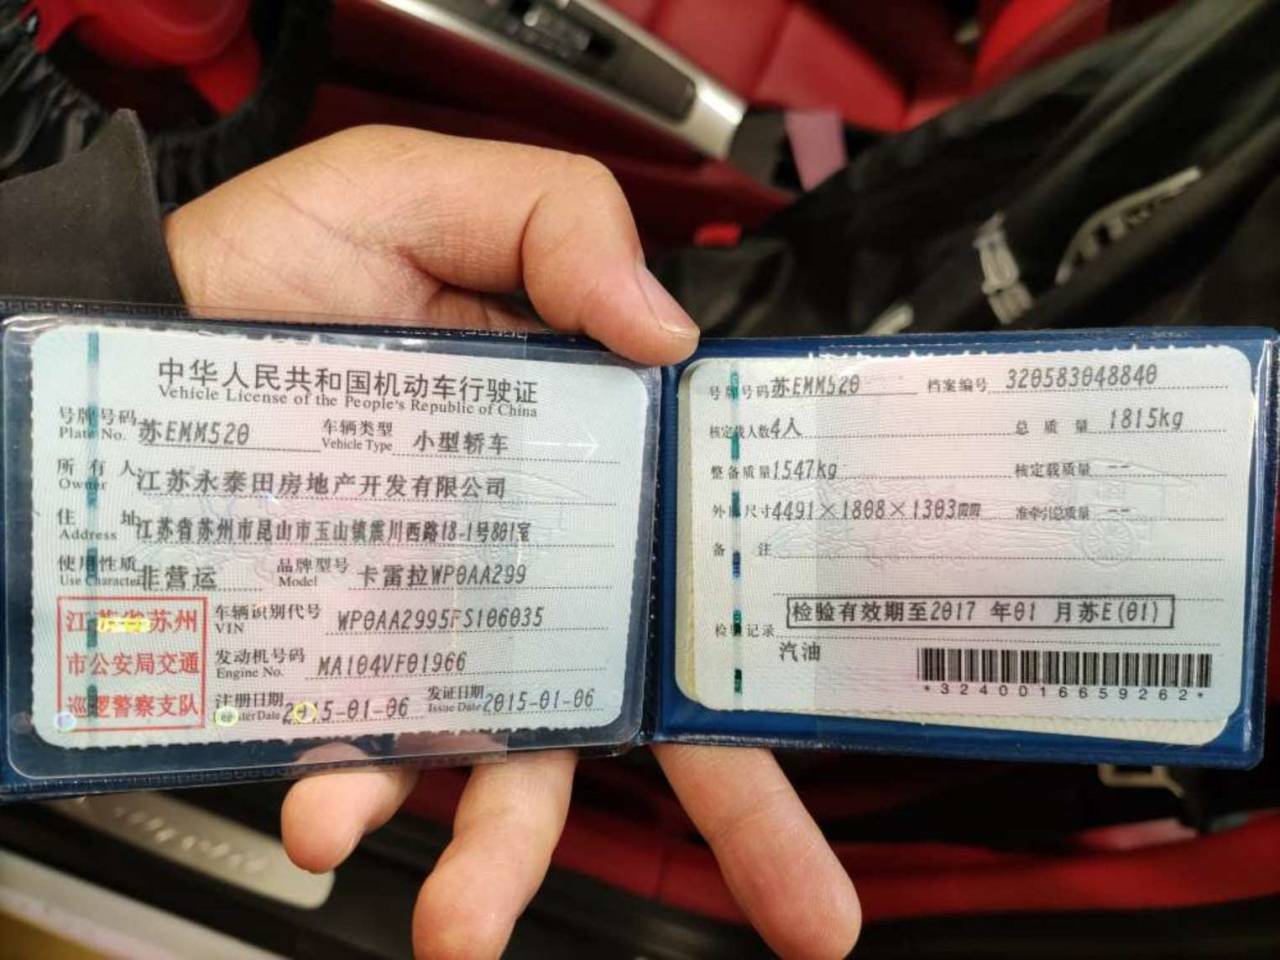 中华人民共和国机动车行驶证
Vehicle License of the People's Republic of China
号牌号码 苏EMM520 车辆类型 小型轿车
Plate No. Vehicle Type
所有人 江苏永泰田房地产开发有限公司
Owner
住址 江苏省苏州市昆山市玉山镇震川西路18-1号801室
Address
使用性质 非营运 品牌型号 卡雷拉WP0AA299
Use Character Model
江苏省苏州
市公安局交通
巡逻警察支队
车辆识别代号 WP0AA2995FS106035
VIN
发动机号码 MA104VF01966
Engine No.
注册日期 2015-01-06 发证日期 2015-01-06
Register Date Issue Date
号牌号码 苏EMM520 档案编号 320583048840
核定载人数 4人 总质量 1815kg
整备质量 1547kg 核定载质量 --
外廓尺寸 4491×1808×1303 准牵引总质量 --
备注
检验有效期至2017年01月苏E(01)
检验记录
汽油
*3240016659262*